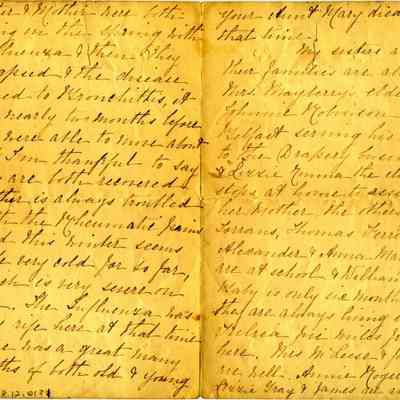 & Mother were both
in the Spring with
Influenza & then they
relapsed & the disease
turned to Bronchittis, it
nearly two months before
were able to move about
I'm thankful to say
are both recovered
is always troubled
the Rheumatic pains
this winter seems
very cold for so far,
is very severe on
The Influenza was
rife here at that time
was a great many
of both old & young
8.12.013
your Aunt Mary
that time.
My sisters
their families are
Mrs Mayberry's
Johnnie Robinson
Belfast serving his
to the Drapery
& Lizzie Emma the
stops at home to
her Mother the others
Torrans, Thomas
Alexander & Anna
are at school & William
Baby is only six months
they are always
here. Mrs McLeese &
are well. Annie
Lizzie Gray & James are